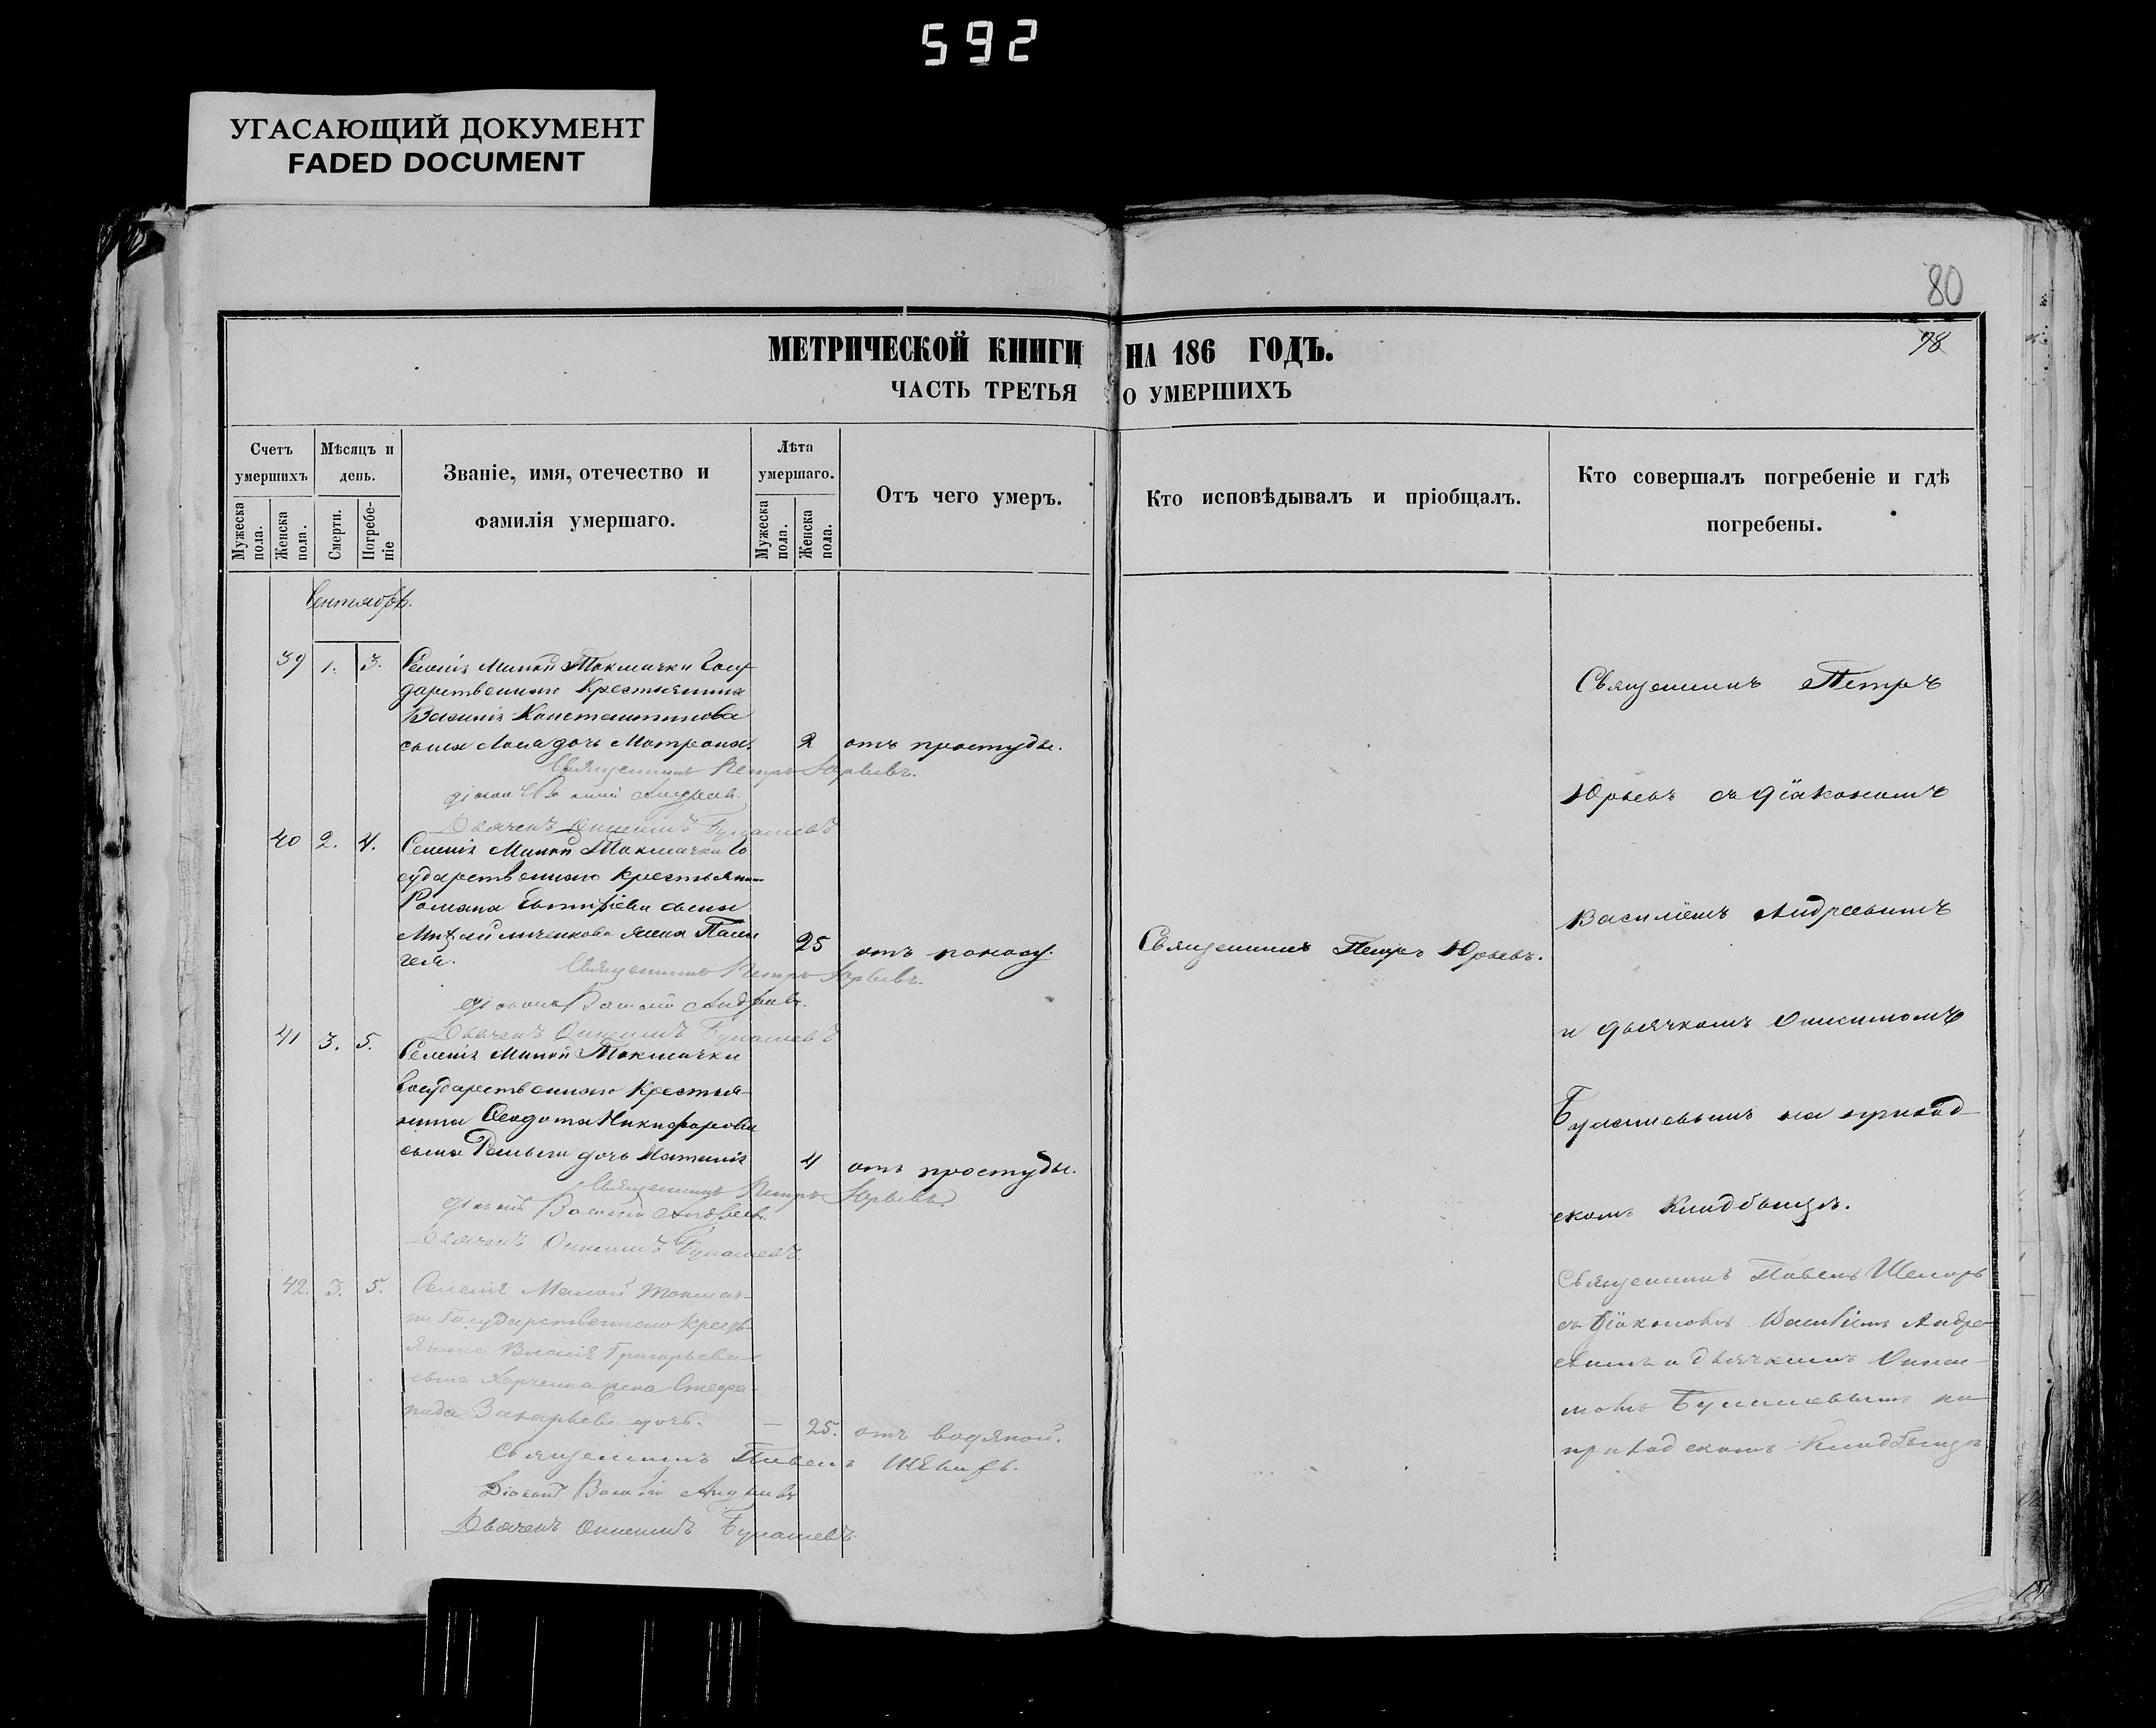 592
УГАСАЮЩИЙ ДОКУМЕНТ
FADED DOCUMENT
80
78
МЕТРИЧЕСКОЙ КНИГИ НА 186 ГОДЪ.
ЧАСТЬ ТРЕТЬЯ О УМЕРШИХЪ
Счетъ умершихъ
Мужеска пола.
Женска пола.
Мѣсяцъ и день.
Смерти.
Погребеніе
Званіе, имя, отечество и
фамилія умершаго.
Лѣта умершаго.
Мужеска пола.
Женска пола.
Отъ чего умеръ.
Кто исповѣдывалъ и пріобщалъ.
Кто совершалъ погребеніе и гдѣ
погребены.
Сентябрь.
39 1. 3. Селенія Малой Токмачки Госу
дарственнаго Крестьянина
Василія Константинова
сына дочь Матрона. 2 отъ простуды.
Священникъ Петръ Юрьевъ.
діаконъ Василій Андреевъ.
Дьячекъ Онисимъ
40 2. 4. Селенія Малой Токмачки Го
сударственнаго крестьяни
Романа сына
жена Пела
гея. 25 отъ поносу. Священникъ Петръ Юрьевъ.
Священникъ Петръ Юрьевъ.
діаконъ Василій Андреевъ.
Дьячекъ Онисимъ
41 3. 5. Селенія Малой Токмачки
Государственнаго Крестья-
нина Ѳеодота Никифорова
сына дочь Наталія 4 отъ простуды.
Священникъ Петръ Юрьевъ.
діаконъ Василій Андреевъ.
Дьячекъ Онисимъ
42. 3. 5. Селенія Малой Токмач-
ки Государственнаго Кресть-
янина Власія Григорьева
сына Харченка жена Стефа-
нида Захарьева дочь. — 25. отъ водяной.
Священникъ Павелъ
Діаконъ Василій Андреевъ
Дьячекъ Онисимъ
Священникъ Петръ
Юрьевъ съ діакономъ
Василіемъ Андреевымъ
и дьячкомъ Онисимомъ
на приход-
скомъ кладбищѣ.
Священникъ Павелъ
съ діакономъ Василіемъ Андре-
евымъ и дьячкомъ Ониси-
момъ на
приходскомъ кладбищѣ